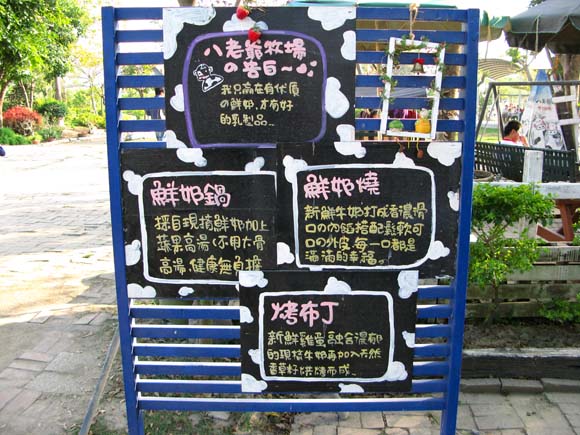 八老爺牧場
の告白~
我只在有優質
の鮮奶，才有好
的乳製品。
鮮奶鍋
採自現擠鮮奶加上
蔬果高湯(不用大骨
高湯，健康無負擔
鮮奶燒
新鮮牛奶打成香濃滑
口の內餡搭配鬆軟可
口の外皮，每一口都是
滿滿的幸福。
烤布丁
新鮮雞蛋融合濃郁
的現擠牛奶再加入天然
香草籽烘烤而成。